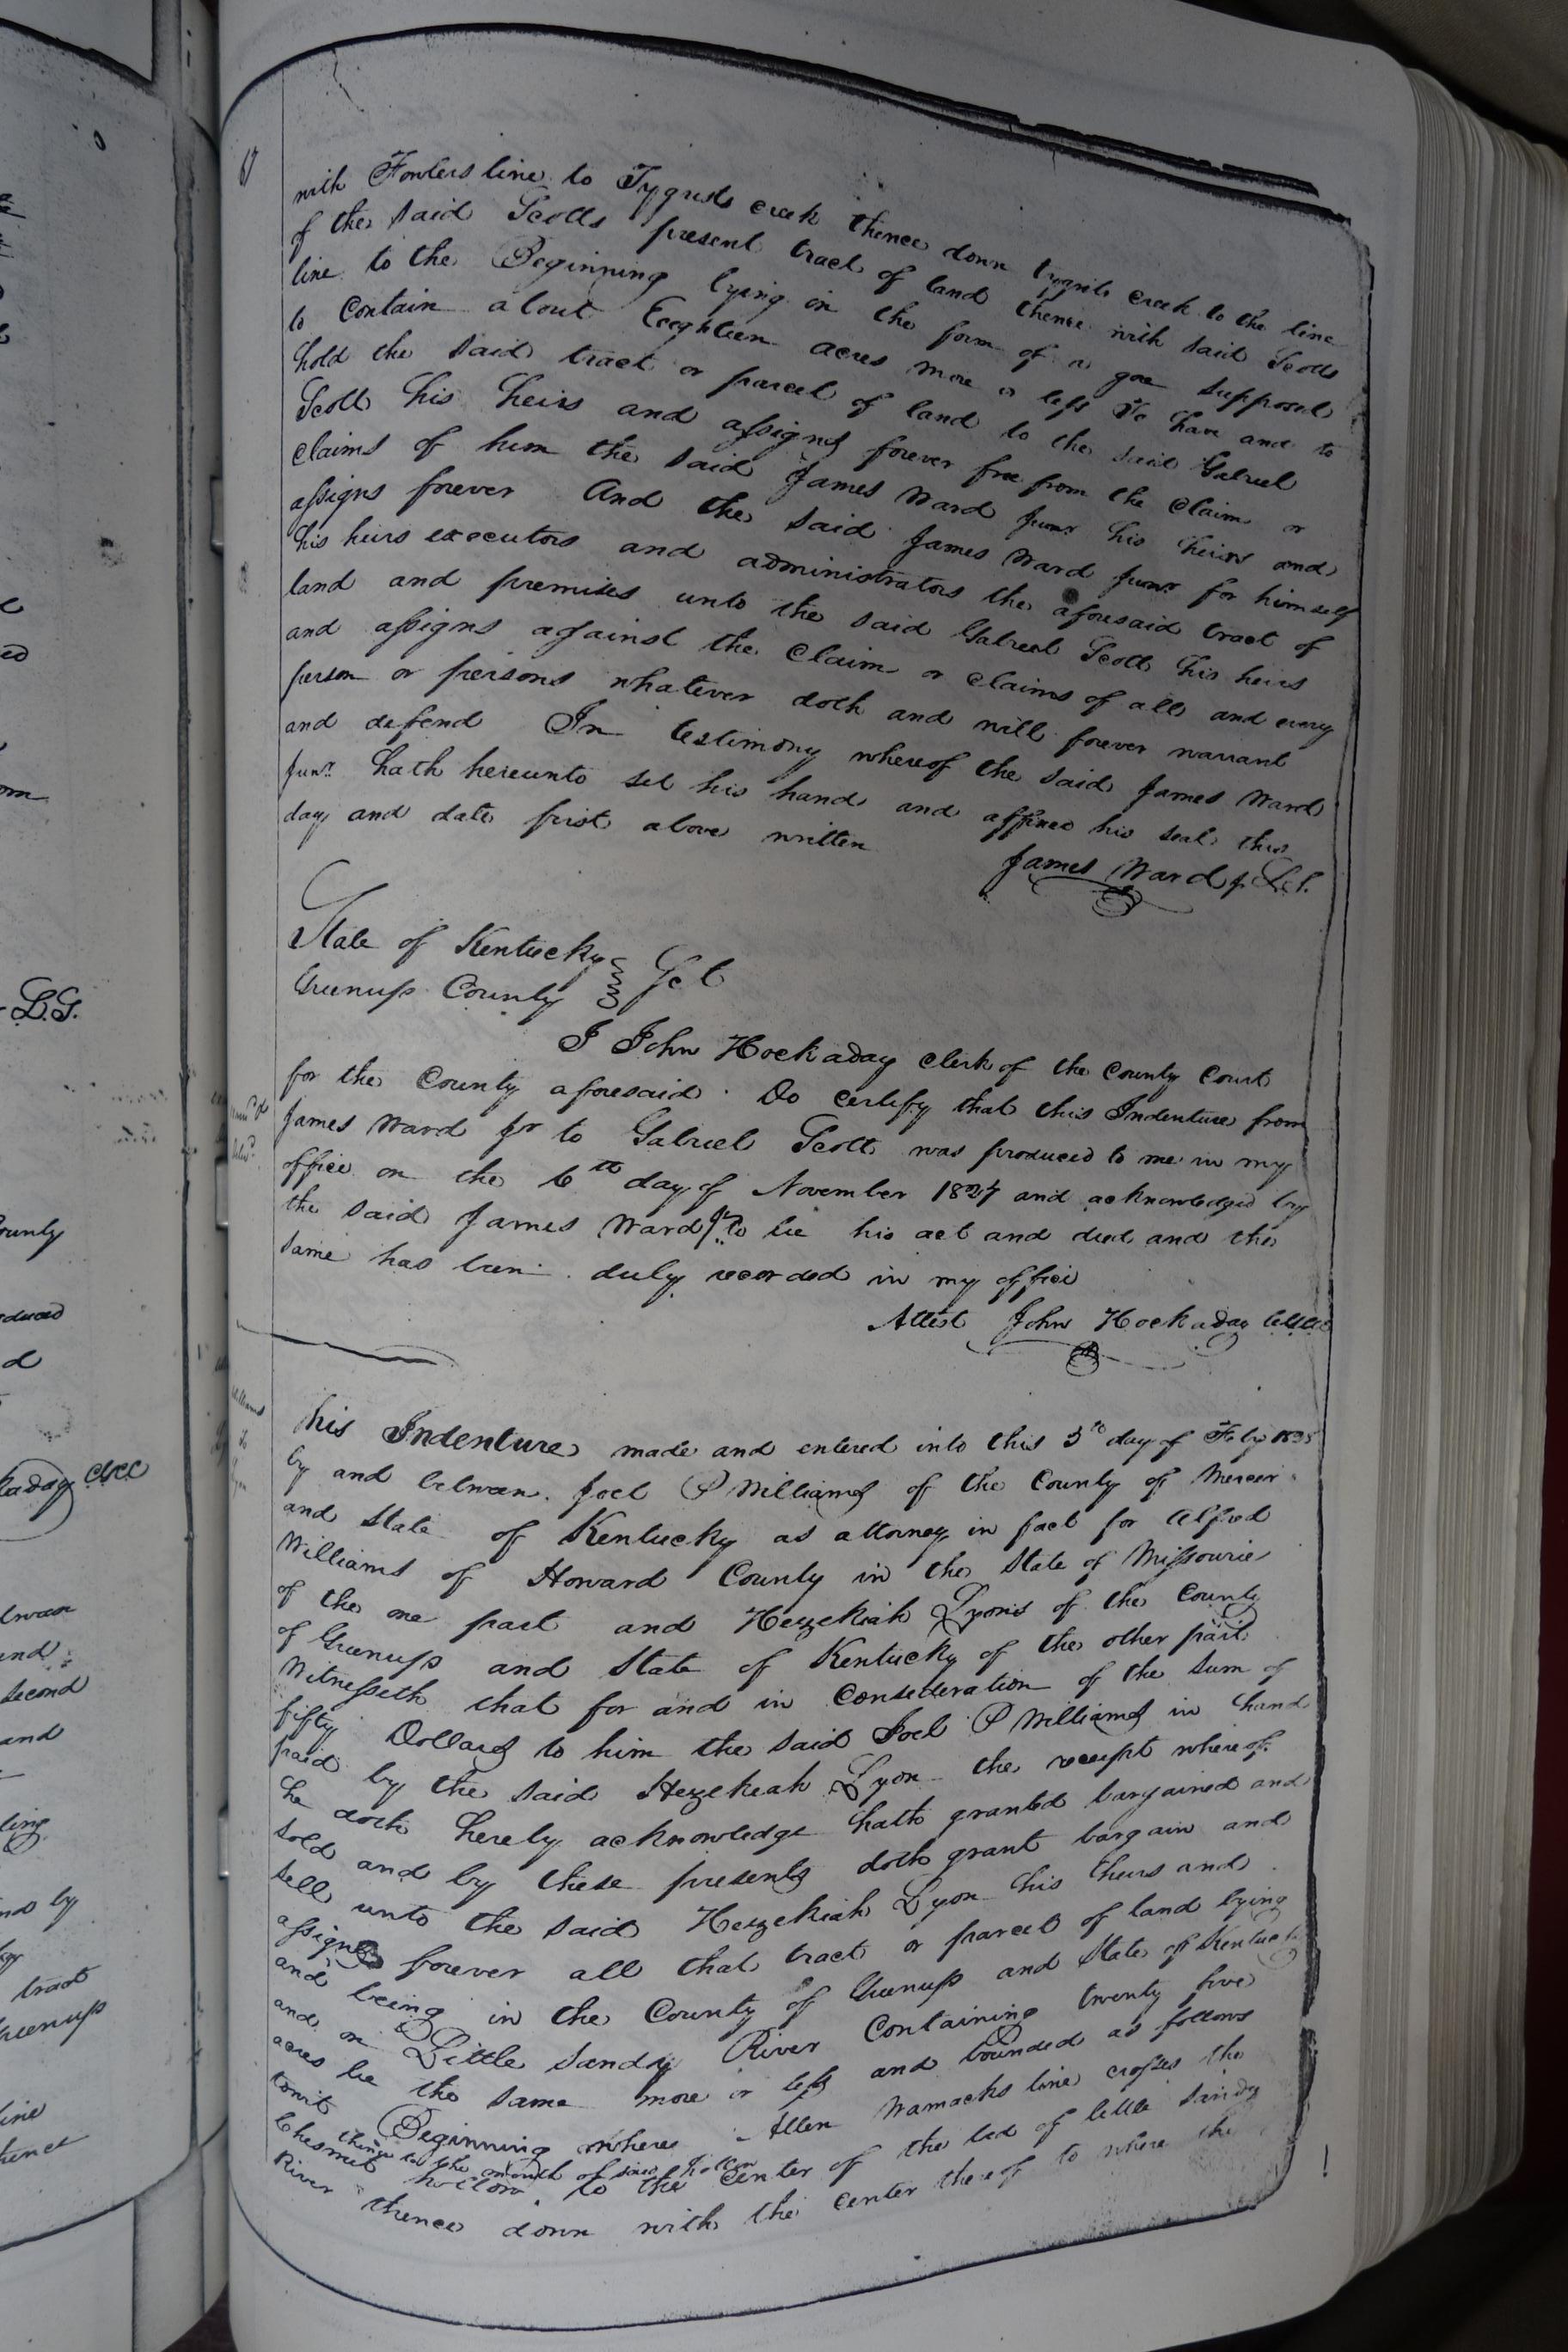 67
with Fowlers line to Tygerts creek thence down tygerts creek to the line
of the said Scotts present tract of land thence with said Scotts
line to the Beginning lying in the form of a gore supposed
to Contain about Eeighteen acres more or less To have and to
hold the said tract or parcel of land to the said Gabriel
Scott his heirs and assigns forever free from the claim or
claims of him the said James Ward Junr his heirs and
assigns forever And the said James Ward Junr for himself
his heirs executors and administrators the aforesaid tract of
land and premises unto the said Gabreal Scott his heirs
and assigns against the Claim or claims of all and every
person or persons whatever doth and will forever warrant
and defend In testimony whereof the said James Ward
Junr. hath hereunto set his hand and affixed his seal this
day and date first above written
James Ward jr L.S.
State of Kentucky
Greenup County Sct
I John Hockaday clerk of the County Court
for the County aforesaid Do certify that this Indenture from
James Ward Jr to Gabriel Scott was produced to me in my
office on the 6th day of November 1827 and acknowledged by
the said James Ward Jr. to be his act and deed and the
same has been duly recorded in my office
Attest John Hockaday
Williams
to
Lyon
his Indenture made and entered into this day of Feby
by and between Joel P Williams of the County of Mercer
and State of Kentucky as attorney in fact for Alfred
Williams of Howard County in the State of Missourie
of the one part and Hezekiah Lyons of the County
of Greenup and State of Kentucky of the other part
Witnesseth that for and in Consideration of the sum of
fifty Dollars to him the said Joel P Williams in hand
paid by the said Hezekiah Lyon the receipt whereof
he doth hereby acknowledge hath granted bargained and
sold and by these presents doth grant bargain and
sell unto the said Hezekiah Lyon his heirs and
assigns forever all that tract or parcel of land lying
and being in the County of Greenup and State of Kentucky
and on Little Sandy River Containing twenty five
acres be the same more or less and bounded as follows
towit Beginning where Allen Wamacks line crosses the
thence to the mouth of said hollow
Chesnut hollow to the Center of the bed of little Sandy
River thence down with the center thereof to where the